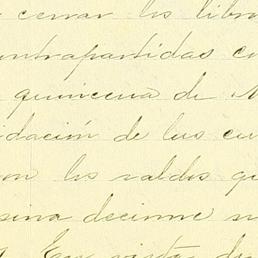 cerrar los libr
ntrapartidas co
quincena de M
dación de las cu
on los saldos qu
sina decirme n
En vista de